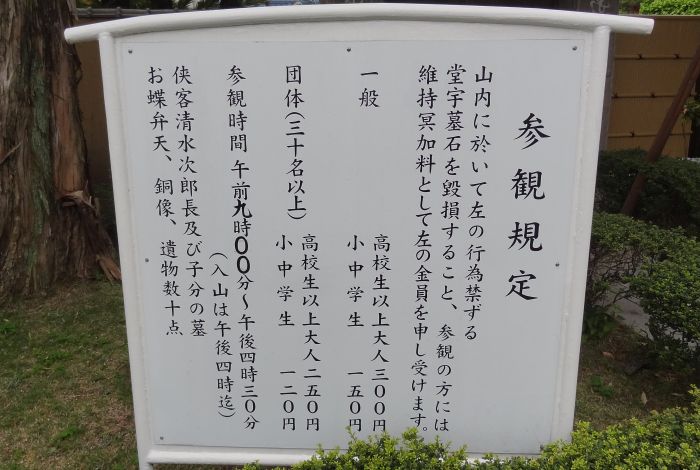 参観規定
山内に於いて左の行為禁ずる
堂宇墓石を毀損すること、参観の方には
維持冥加料として左の金員を申し受けます。
一般 高校生以上大人三〇〇円
小中学生 一五〇円
団体(三十名以上) 高校生以上大人二五〇円
小中学生 一二〇円
参観時間 午前九時00分〜午後四時三0分
(入山は午後四時迄)
侠客清水次郎長及び子分の墓
お蝶弁天、銅像、遺物数十点